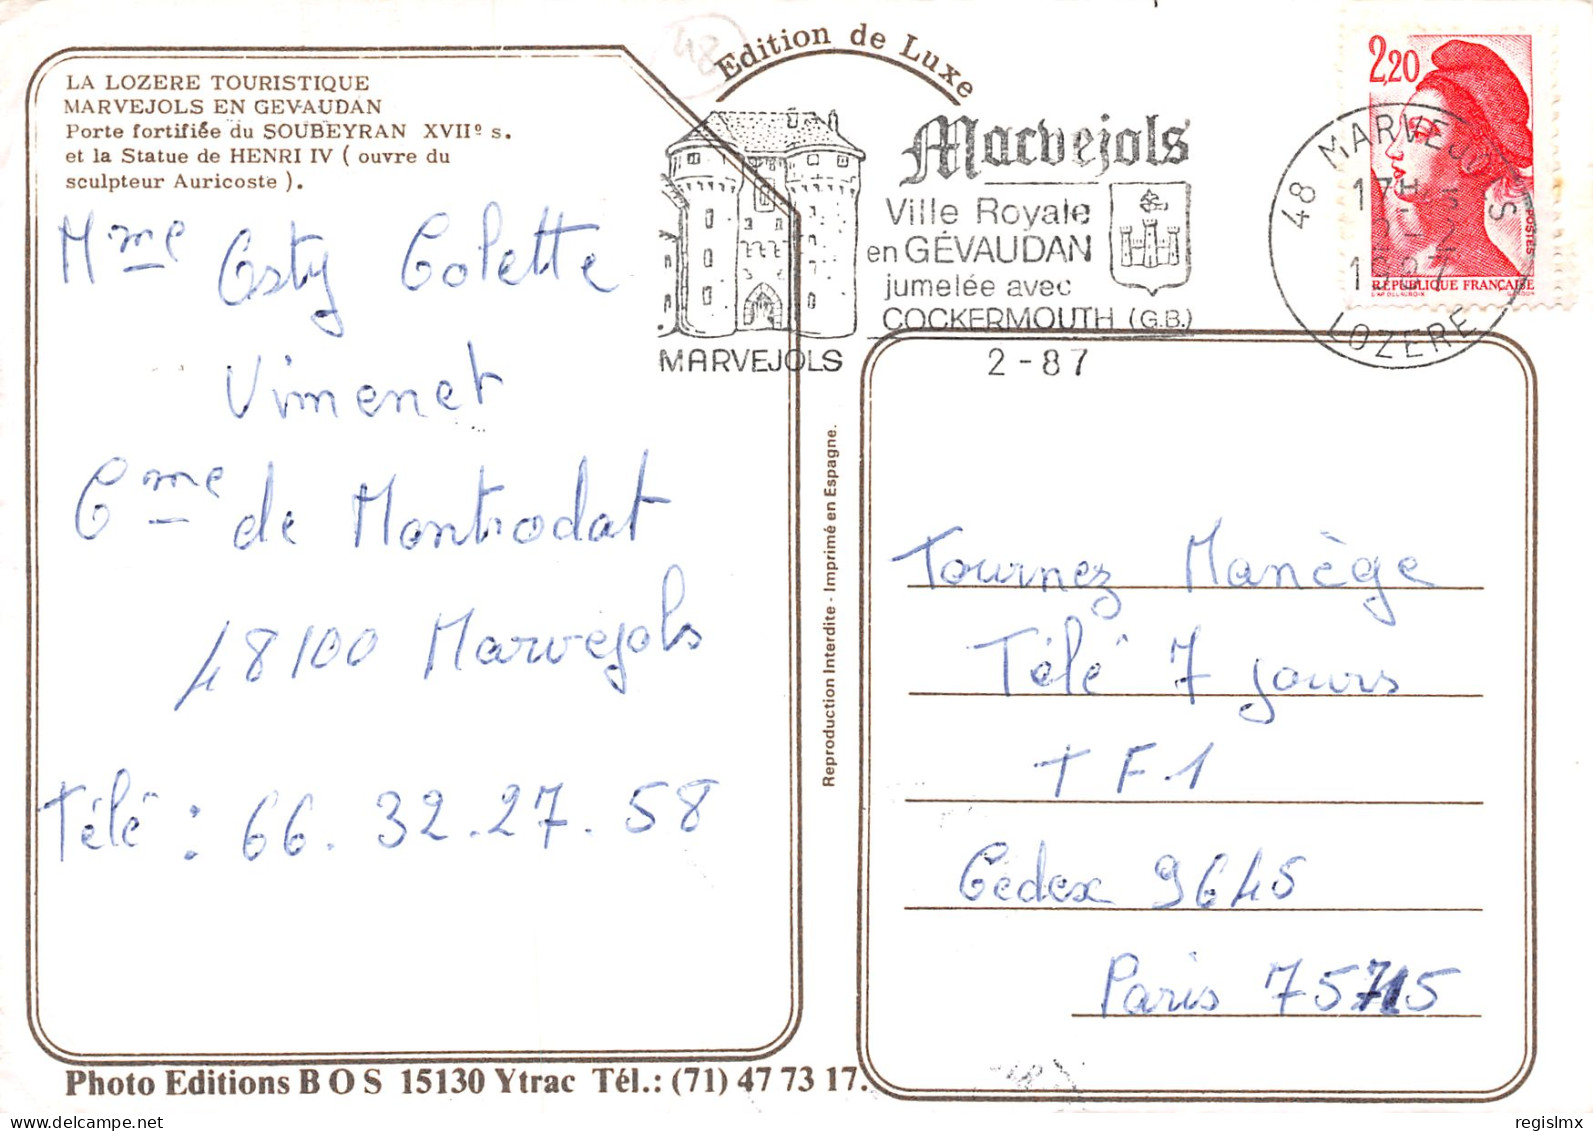 48
LA LOZERE TOURISTIQUE
MARVEJOLS EN GEVAUDAN
Porte fortifiée du SOUBEYRAN XVIIº s.
et la Statue de HENRI IV ( ouvre du
sculpteur Auricoste ).
Edition de Luxe
Marvejols
Ville Royale
en GÉVAUDAN
jumelée avec
COCKERMOUTH (G.B.)
MARVEJOLS
2-87
48 MARVEJOLS
17H
LOZERE
2,20
POSTES
RÉPUBLIQUE FRANÇAISE
Mme Osty Colette
Vimenet
Cme de Montrodat
48100 Marvejols
Télé : 66.32.27.58
Reproduction Interdite - Imprimé en Espagne.
Tournez Manège
Télé 7 jours
TF1
Cedex 9645
Paris 75715
Photo Editions B O S 15130 Ytrac Tél.: (71) 47 73 17.
regislmx